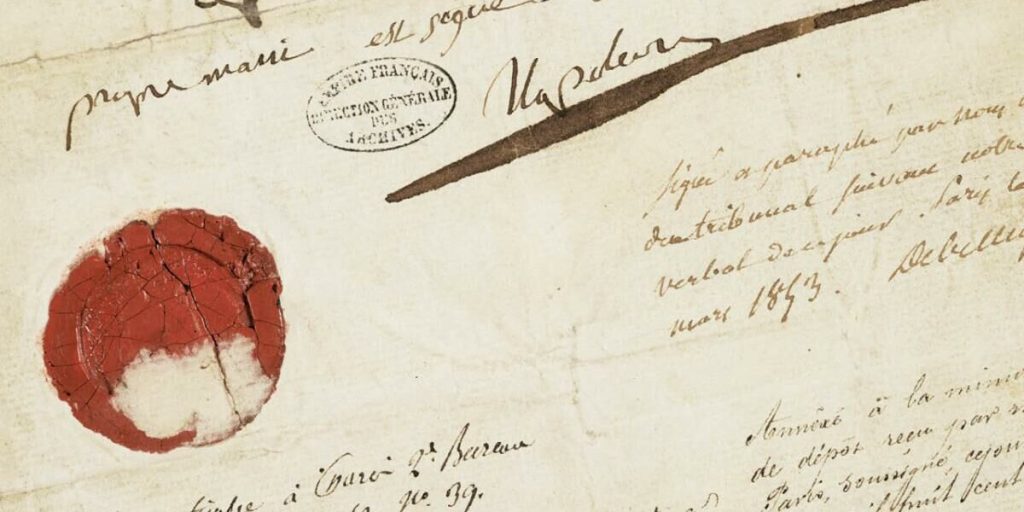 propre main est
EMPIRE FRANÇAIS
DIRECTION GÉNÉRALE
DES
ARCHIVES.
Napoleon
signé et paraphé par nous
du tribunal suivant notre
verbal de ce jour. Paris le
mars 1853. Debelley
Annexé à la minu
de dépôt reçu par
Paris, soussigné, cejou
il huit cent
à Paris 2e. Bureau
No. 39.